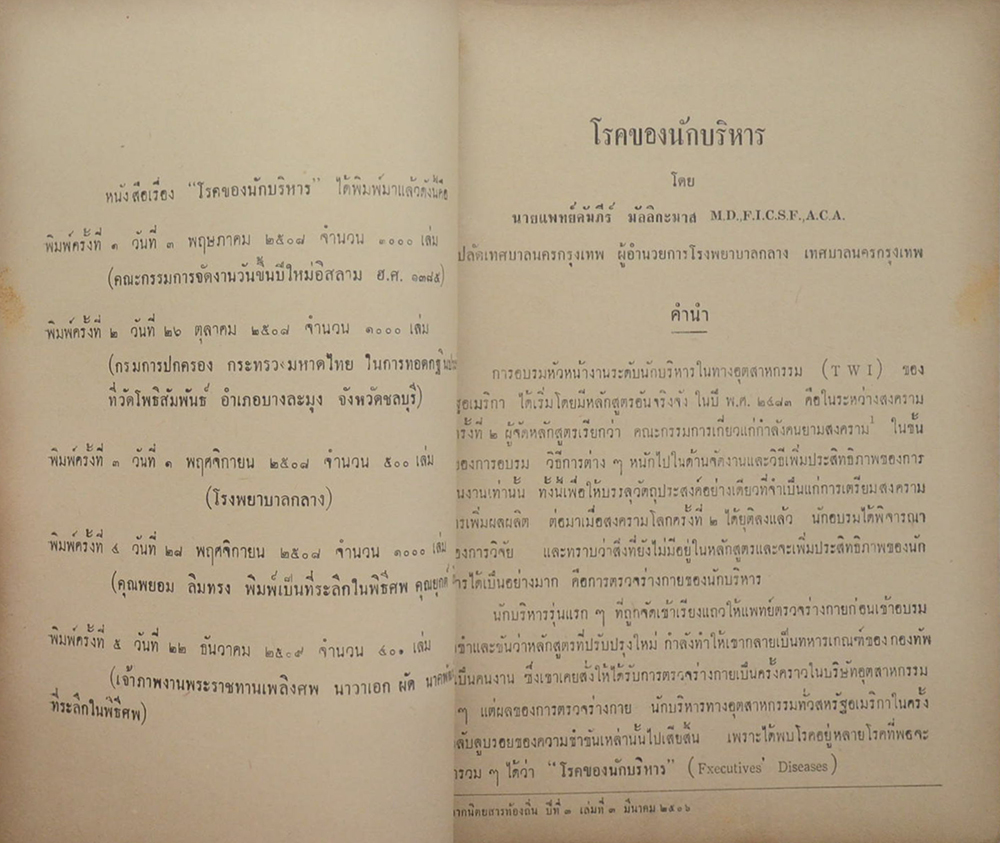 หนังสือเรื่อง “โรคของนักบริหาร” ได้พิมพ์มาแล้วดังนี้คือ
พิมพ์ครั้งที่ ๑ วันที่ ๓ พฤษภาคม ๒๕๐๘ จำนวน ๑๐๐๐ เล่ม
(คณะกรรมการจัดงานวันขึ้นปีใหม่อิสลาม ฮ.ศ. ๑๓๘๕)
พิมพ์ครั้งที่ ๒ วันที่ ๒๖ ตุลาคม ๒๕๐๘ จำนวน ๑๐๐๐ เล่ม
(กรมการปกครอง กระทรวงมหาดไทย ในการทอดกฐิน
ที่วัดโพธิสัมพันธ์ อำเภอบางละมุง จังหวัดชลบุรี)
พิมพ์ครั้งที่ ๓ วันที่ ๑ พฤศจิกายน ๒๕๐๘ จำนวน ๕๐๐ เล่ม
(โรงพยาบาลกลาง)
พิมพ์ครั้งที่ ๔ วันที่ ๒๘ พฤศจิกายน ๒๕๐๘ จำนวน ๑๐๐๐ เล่ม
(คุณพยอม ลิมทรง พิมพ์เป็นที่ระลึกในพิธีศพ
พิมพ์ครั้งที่ ๕ วันที่ ๒๒ ธันวาคม ๒๕๐๙ จำนวน ๔๐๑ เล่ม
(เจ้าภาพงานพระราชทานเพลิงศพ นาวาเอก ผัด
ที่ระลึกในพิธีศพ)
โรคของนักบริหาร
โดย
นายแพทย์คัมภีร์ มัลลิกะมาส M.D.,F.I.C.S.F.,A.C.A.
ปลัดเทศบาลนครกรุงเทพ ผู้อำนวยการโรงพยาบาลกลาง เทศบาลนครกรุงเทพ
คำนำ
การอบรมหัวหน้างานระดับนักบริหารในทางอุตสาหกรรม (T W I) ของ
รัฐอเมริกา ได้เริ่มโดยมีหลักสูตรอันจริงจัง ในปี พ.ศ. ๒๔๘๓ คือในระหว่างสงคราม
ครั้งที่ ๒ ผู้จัดหลักสูตรเรียกว่า คณะกรรมการเกี่ยวแก่กำลังคนยามสงคราม¹ ในชั้น
ของการอบรม วิธีการต่าง ๆ หนักไปในด้านจัดงานและวิธีเพิ่มประสิทธิภาพของการ
นงานเท่านั้น ทั้งนี้เพื่อให้บรรลุวัตถุประสงค์อย่างเดียวที่จำเป็นแก่การเตรียมสงคราม
การเพิ่มผลผลิต ต่อมาเมื่อสงครามโลกครั้งที่ ๒ ได้ยุติลงแล้ว นักอบรมได้พิจารณา
ของการวิจัย และทราบว่าสิ่งที่ยังไม่มีอยู่ในหลักสูตรและจะเพิ่มประสิทธิภาพของนัก
หารได้เป็นอย่างมาก คือการตรวจร่างกายของนักบริหาร
นักบริหารรุ่นแรก ๆ ที่ถูกจัดเข้าเรียงแถวให้แพทย์ตรวจร่างกายก่อนเข้าอบรม
ขำและขันว่าหลักสูตรที่ปรับปรุงใหม่ กำลังทำให้เขากลายเป็นทหารเกณฑ์ของกองทัพ
เป็นคนงาน ซึ่งเขาเคยสั่งให้ได้รับการตรวจร่างกายเป็นครั้งคราวในบริษัทอุตสาหกรรม
ๆ แต่ผลของการตรวจร่างกาย นักบริหารทางอุตสาหกรรมทั่วสหรัฐอเมริกาในครั้ง
ลับลูบรอยของความขำขันเหล่านั้นไปเสียสิ้น เพราะได้พบโรคอยู่หลายโรคที่พอจะ
รวม ๆ ได้ว่า “โรคของนักบริหาร” (Fxecutives’ Diseases)
จากนิตยสารท้องถิ่น ปีที่ ๓ เล่มที่ ๓ มีนาคม ๒๕๐๖